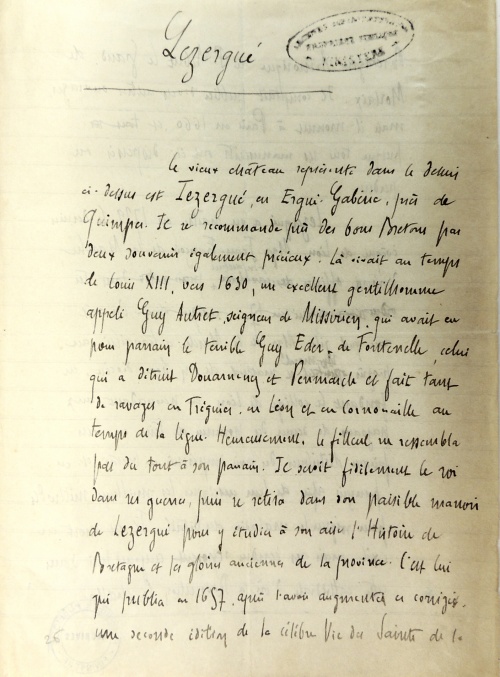 Lezergué
FINISTÈRE
Le vieux château représenté dans le dessin
ci-dessus est Lezergué, en Ergué-Gabéric, près de
Quimper. Il se recommande près des bons Bretons par
deux souvenirs également précieux. Là vivait au temps
de Louis XIII, vers 1630, un excellent gentilhomme
appelé Guy Autret, seigneur de Missirien, qui avait eu
pour parrain le terrible Guy Eder, de Fontenelle, celui
qui a détruit Douarnenez et Penmarch et fait tant
de ravages en Tréguier, en Léon et en Cornouaille au
temps de la ligue. Heureusement, le filleul ne ressembla
pas du tout à son parrain. Il servit fidèlement le roi
dans ses guerres, puis se retira dans son paisible manoir
de Lezergué pour y étudier à son aise l'Histoire de
Bretagne et les gloires anciennes de la province. C'est lui
qui publia en 1657, après l'avoir augmentée et corrigée,
une seconde édition de la célèbre Vie des Saints de la